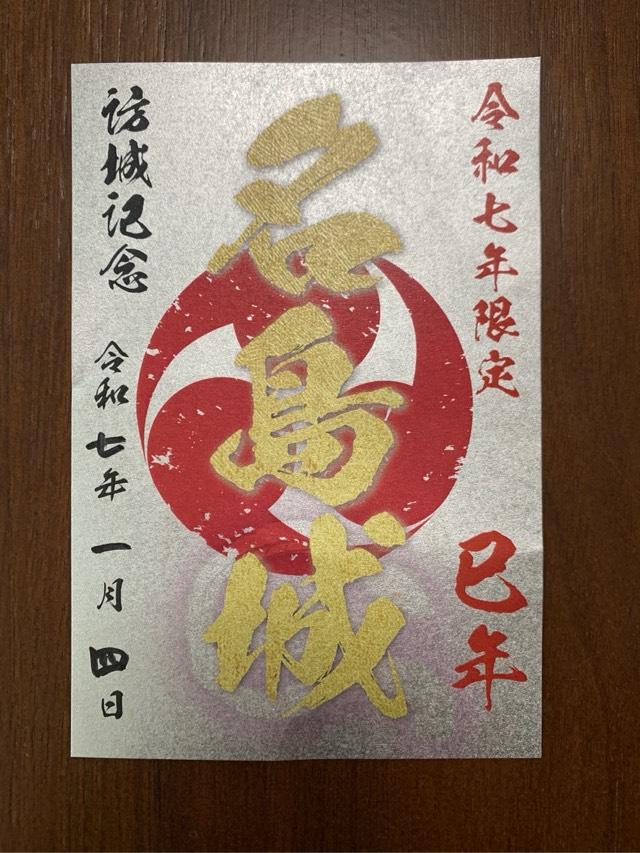 令和七年限定
巳年
名島城
訪城記念
令和七年一月四日